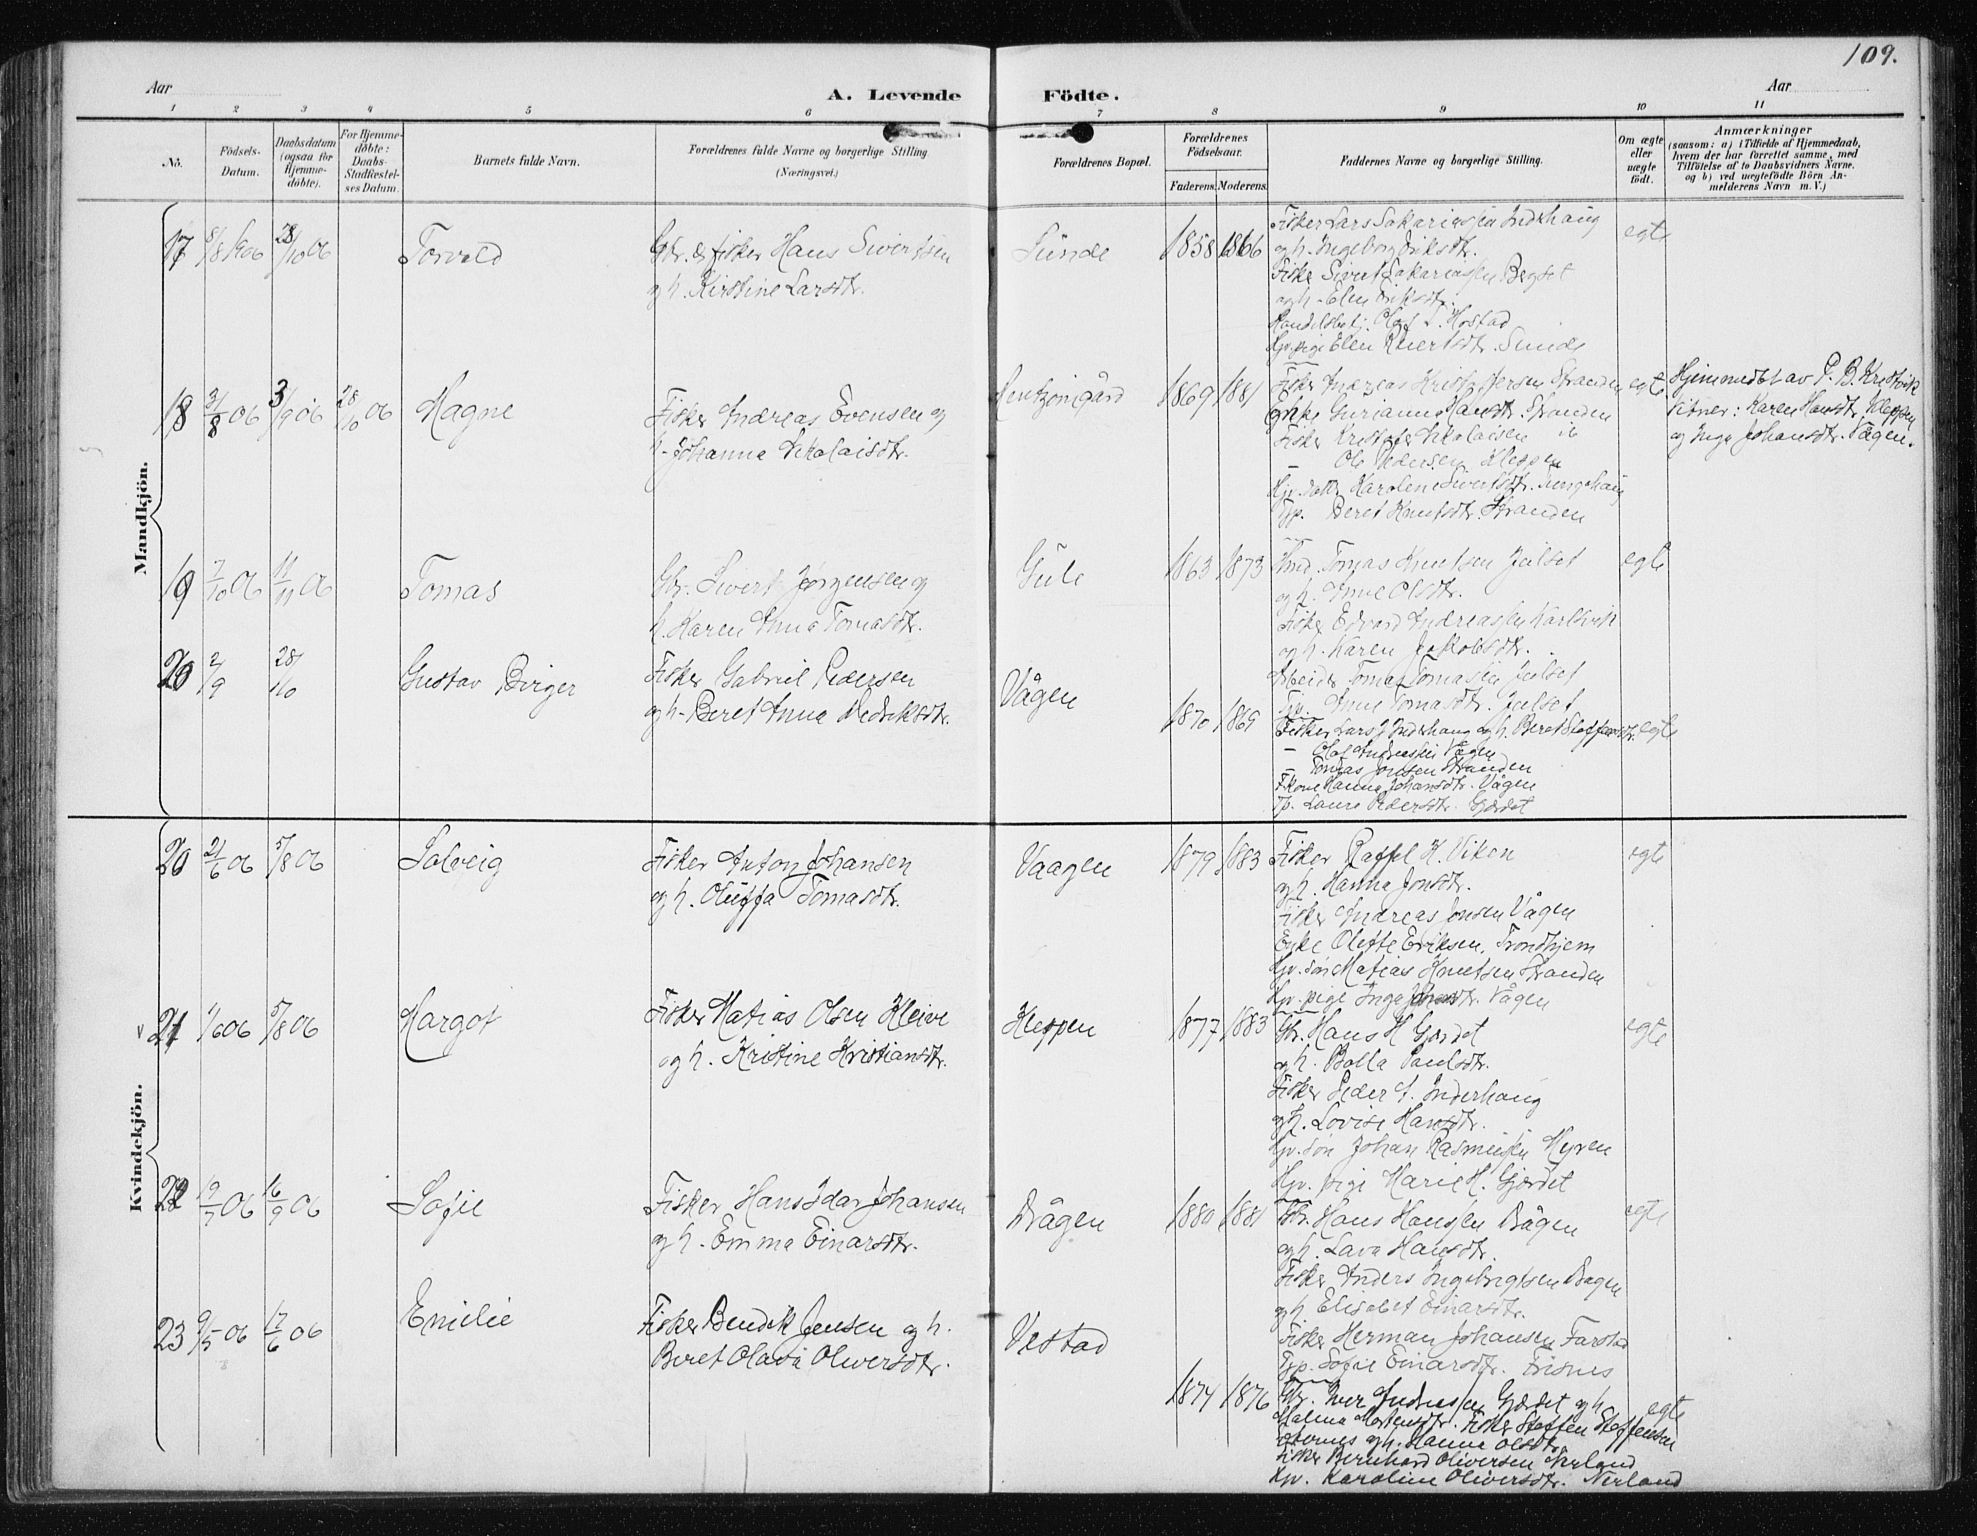 109.
Aar
A. Levende Födte.
Aar
1 2 3 4 5 6 7 8 9 10 11
No. Födsels-Datum. Daabsdatum (ogsaa for Hjemme-döbte). For Hjemme-döbte: Daabs-Stadfæstel-ses Datum. Barnets fulde Navn. Forældrenes fulde Navne og borgerlige Stilling (Næringsvei.) Forældrenes Bopæl. Forældrenes Födselsaar. Faderens. Moderens. Faddernes Navne og borgerlige Stilling. Om ægte eller uægte födt. Anmærkninger (saasom: a) i Tilfælde af Hjemmedaab, hvem der har forrettet samme, med Tilföielse af to Daabsvidners Navne, og b) ved uægtefödte Börn An-melderens Navn m. V.)
Mandkjön.
17 8/8 1906 28/10 06 Torvald
Gbr. & fisker Hans Sivertsen
og h. Kirstine Larsdtr.
Sunde 1858 1866
Fisker Lars Sakariassen Inderhaug
og h. Ingeborg Eriksdtr.
Fisker Sivert Sakariassen Begset
og h. Elen Eriksdtr.
Handelsbetj. Olaf S. Hostad
Gp. pige Elen Knertsdtr. Sunde
egte
18 31/8 06 3/9 06 28/10 06 Magne
Fisker Andreas Evensen og
h. Johanna Nikolaisdtr.
1869 1881
Fisker Andreas Kristoffersen Stranden
Enke Gurianna Hansdtr. Stranden
Fisker Kristofer Nikolaisen ib
— Ole Pedersen Kleppen
Karoline Sivertsdtr.
Gp. Beret Knutsdtr. Stranden
egte
Hjemmedbt av P. B. Kristvik
vitner: Karen Hansdtr. Kleppen
og Inga Johansdtr. Vågen.
19 7/10 06 11/11 06 Tomas
Gbr. Sivert Jørgensen og
h. Karen Anna Tomasdtr.
Gule 1863 1873
Tomas Knutsen Julset
og h. Anne Olsdtr.
Fisker Edvard Andreassen Karlsvik
og h. Karen Jakobsdtr.
Arbeider Tomas Tomassen Julset
Gp. Anne Tomasdtr. Julset
egte
20 2/9 28/10 Gustav Birger
Fisker Gabriel Pedersen
og h. Beret Anna Didriksdtr.
Vågen 1870 1869
Fisker Lars J Inderhaug og h. Beret Staffensdtr. egte
— Olaf Andreassen Vågen
— Tomas Jonsen Stranden
Fkone Hanna Johansdtr. Vågen
Gp. Laura Pedersdtr. Gjærdet
Kvindekjön.
20 21/6 06 5/8 06 Solveig
Fisker Anton Johansen
og h. Oluffa Tomasdtr.
Vaagen 1879 1883
Fisker Raffel K. Viken
og h. Hanna Jonsdtr.
Fisker Andreas Jonsen Vågen
Enke Oluffe Eriksen, Trondhjem
Gp. søn Matias Knutsen Stranden
Gp. pige Inga Johansdtr. Vågen
egte
v 21 1/6 06 5/8 06 Margot
Fisker Matias Olsen Kleive
og h. Kristine Kristiansdtr.
Kleppen 1877 1883
Gbr. Hans H Gjærdet
og h. Bolla Paulsdtr.
Fisker Peder S. Inderhaug
og h. Lovise Hansdtr.
Gp. søn Johan Rasmussen Myren
Gp. pige Marie H. Gjærdet
egte
22 19/7 06 16/9 06 Sofie
Fisker Hans Idar Johansen
og h. Emma Einarsdtr.
Drågen 1880 1881
Gbr. Hans Hanssen Dågen
og h. Lava Hansdtr.
Fisker Anders Ingebrigtsen Dragen
og h Elisabet Einarsdtr.
Fisker Herman Johansen Farstad
Gp. Sofie Einarsdtr. Frisnes
egte
23 9/5 06 17/6 06 Emilie
Fisker Bendik Jensen og h.
Beret Olava Oliversdtr.
Vestad 1874 1876
Gbr. Iver Andreassen Gjærdet og h
Malena Mortensdtr. Fisker Steffen Steffensen
og h. Hanna Olsdtr.
Fisker Bernhard Oliversen Nerland
Gp. Karoline Oliversdtr. Nerland
egte